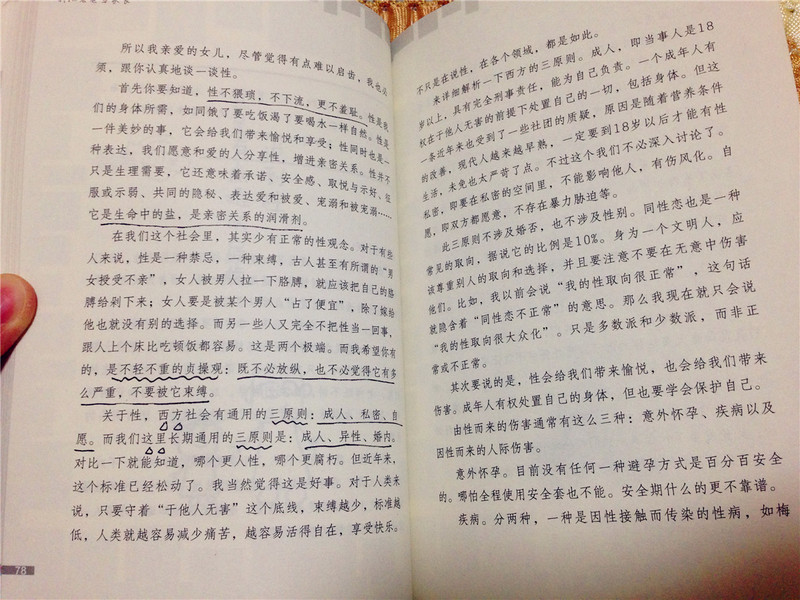 所以我亲爱的女儿，尽管觉得有点难以启齿，我也必
须，跟你认真地谈一谈性。
首先你要知道，性不猥琐，不下流，更不羞耻。性是我
们的身体所需，如同饿了要吃饭渴了要喝水一样自然。性是
一件美妙的事，它会给我们带来愉悦和享受；性同时也是一
种表达，我们愿意和爱的人分享性，增进亲密关系。性并不
只是生理需要，它还意味着承诺、安全感、取悦与示好、征
服或示弱、共同的隐秘、表达爱和被爱、宠溺和被宠溺……
它是生命中的盐，是亲密关系的润滑剂。
在我们这个社会里，其实少有正常的性观念。对于有些
人来说，性是一种禁忌，一种束缚，古人甚至有所谓的“男
女授受不亲”，女人被男人拉一下胳膊，就应该把自己的胳
膊给剁下来；女人要是被某个男人“占了便宜”，除了嫁给
他也就没有别的选择。而另一些人又完全不把性当一回事，
跟人上个床比吃顿饭都容易。这是两个极端。而我希望你有
的，是不轻不重的贞操观：既不必放纵，也不必觉得它有多
么严重，不要被它束缚。
关于性，西方社会有通用的三原则：成人、私密、自
愿。而我们这里长期通用的三原则是：成人、异性、婚内。
对比一下就能知道，哪个更人性，哪个更腐朽。但近年来，
这个标准已经松动了。我当然觉得这是好事。对于人类来
说，只要守着“于他人无害”这个底线，束缚越少，标准越
低，人类就越容易减少痛苦，越容易活得自在，享受快乐。
78
不只是在说性，在各个领域，都是如此。
来详细解析一下西方的三原则。成人，即当事人是18
岁以上，具有完全刑事责任，能为自己负责。一个成年人有
权在于他人无害的前提下处置自己的一切，包括身体。但这
一条近年来也受到了一些社团的质疑，原因是随着营养条件
的改善，现代人越来越早熟，一定要到18岁以后才能有性
生活，未免也太严苛了点。不过这个我们不必深入讨论了。
私密，即要在私密的空间里，不能影响他人，有伤风化。自
愿，即双方都愿意，不存在暴力胁迫等。
此三原则不涉及婚否，也不涉及性别。同性恋也是一种
常见的取向，据说它的比例是10%。身为一个文明人，应
该尊重别人的取向和选择，并且要注意不要在无意中伤害
他们。比如，我以前会说“我的性取向很正常”，这句话
就隐含着“同性恋不正常”的意思。那么我现在就只会说
“我的性取向很大众化”。只是多数派和少数派，而非正
常或不正常。
其次要说的是，性会给我们带来愉悦，也会给我们带来
伤害。成年人有权处置自己的身体，但也要学会保护自己。
由性而来的伤害通常有这么三种：意外怀孕、疾病以及
因性而来的人际伤害。
意外怀孕。目前没有任何一种避孕方式是百分百安全
的。哪怕全程使用安全套也不能。安全期什么的更不靠谱。
疾病。分两种，一种是因性接触而传染的性病，如梅